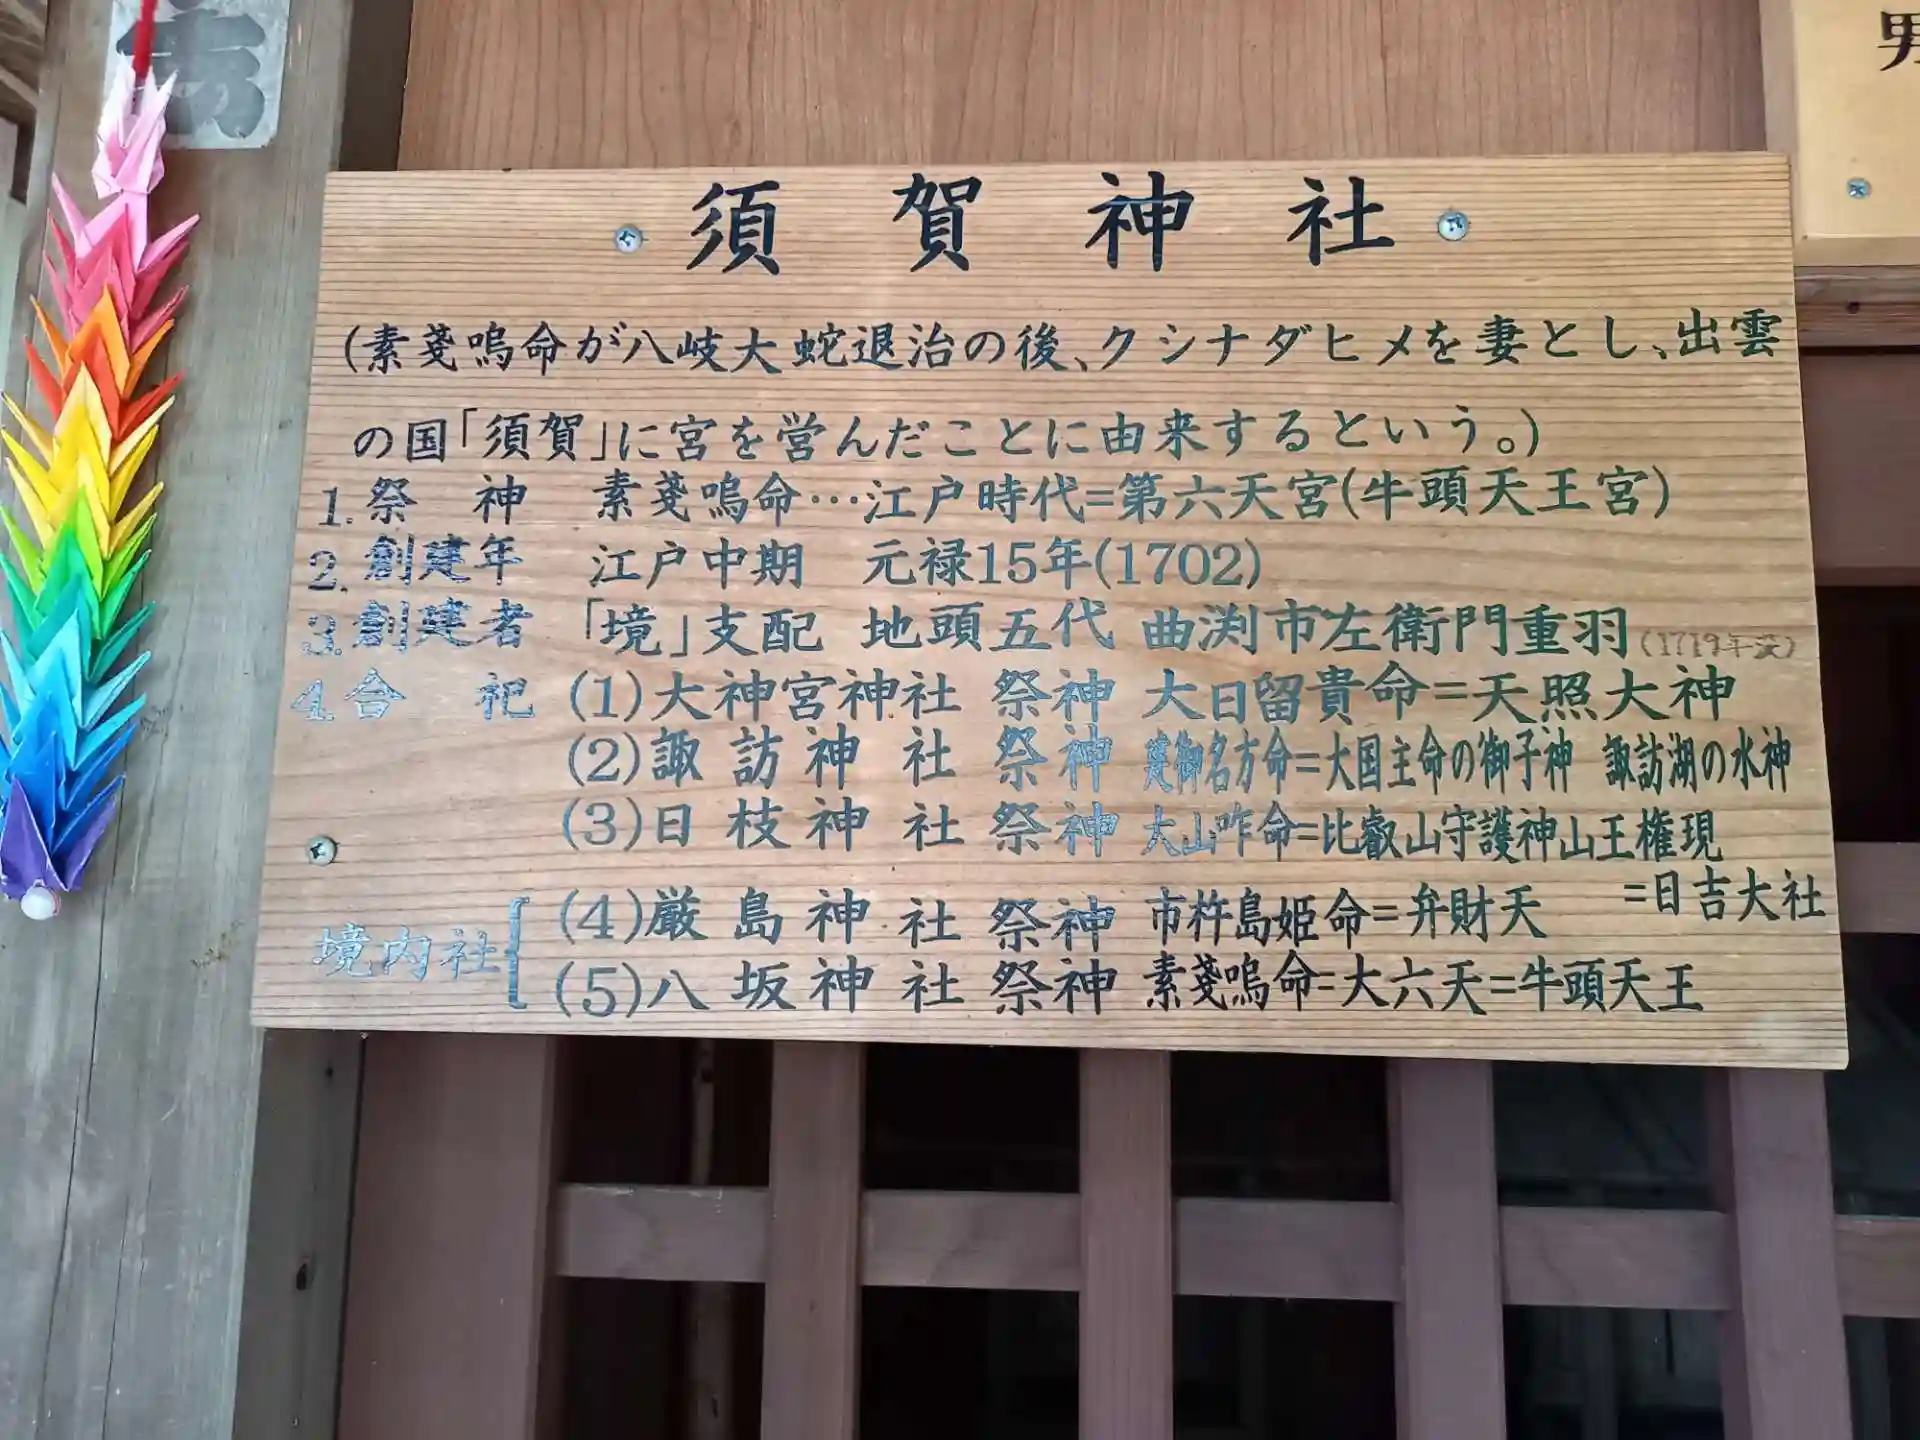 須賀神社
(素戔嗚命が八岐大蛇退治の後、クシナダヒメを妻とし、出雲
の国「須賀」に宮を営んだことに由来するという。)
1. 祭神 素戔嗚命…江戸時代=第六天宮(牛頭天王宮)
2. 創建年 江戸中期 元禄15年(1702)
3. 創建者 「境」支配 地頭五代 曲渕市左衛門重羽(1719年没)
4. 合祀 (1)大神宮神社 祭神 大日留貴命=天照大神
(2)諏訪神社 祭神 建御名方命=大国主命の御子神 諏訪湖の水神
(3)日枝神社 祭神 大山咋命=比叡山守護神山王権現
=日吉大社
境内社 (4)厳島神社 祭神 市杵島姫命=弁財天
(5)八坂神社 祭神 素戔嗚命=大六天=牛頭天王
男